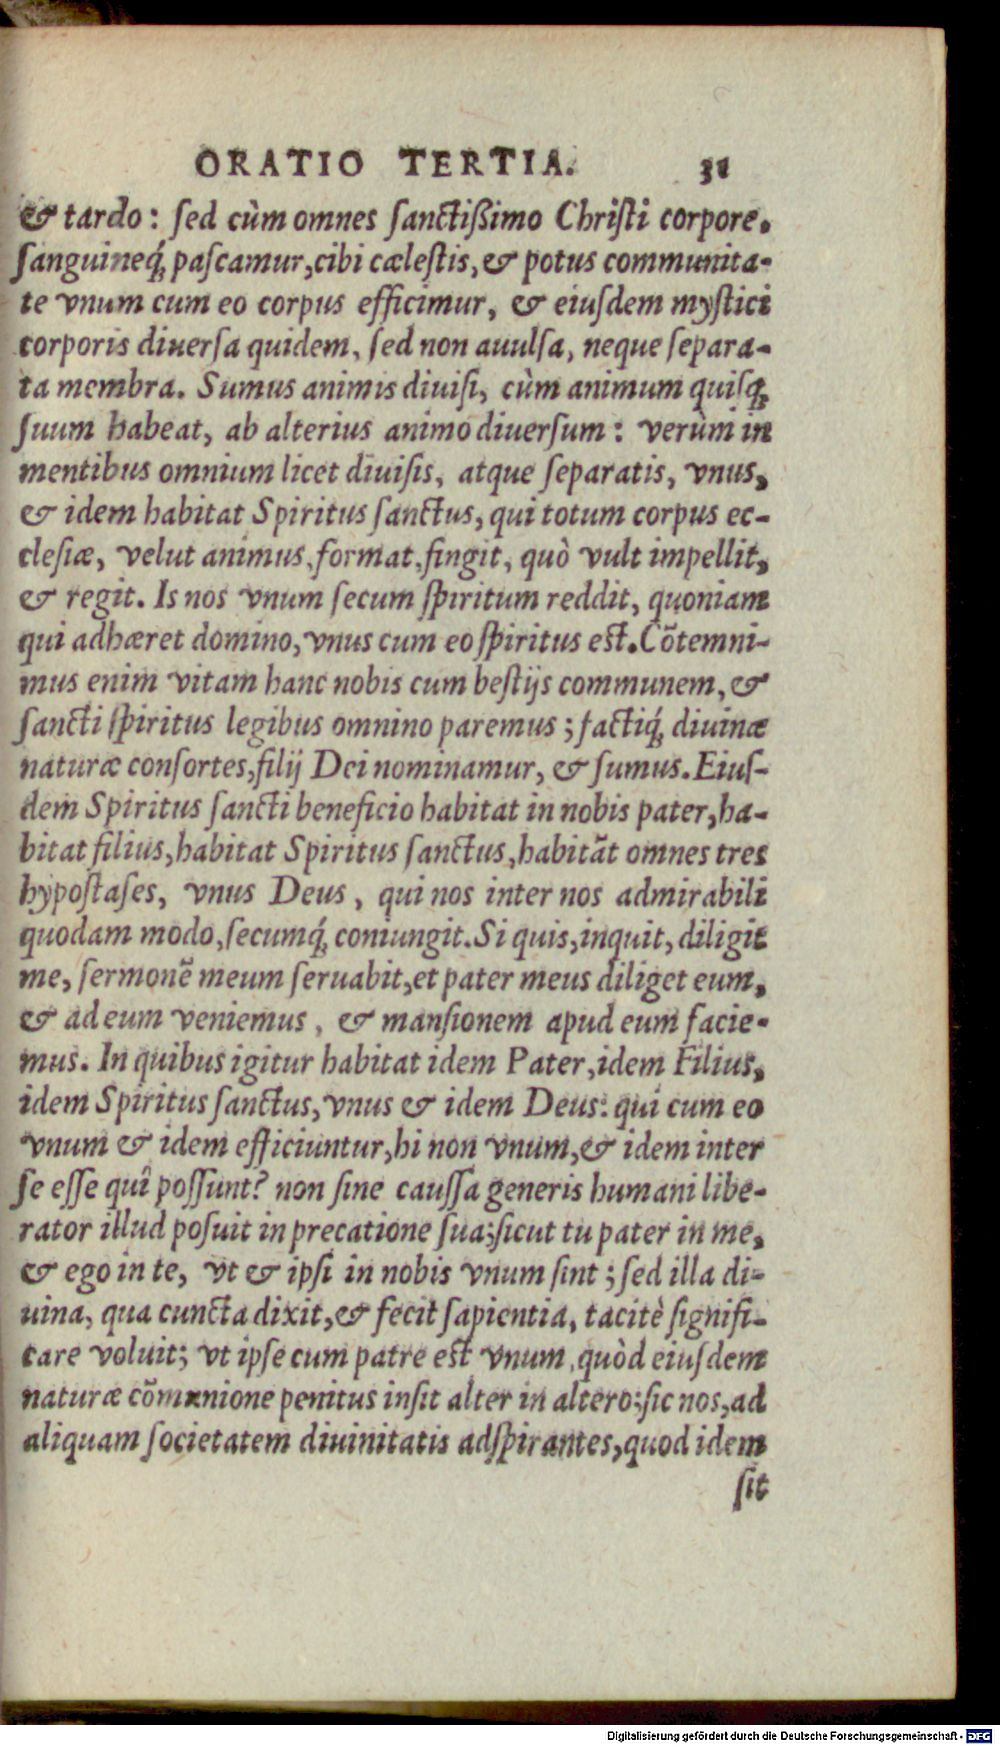 ORATIO TERTIA. 31
& tardo: ſed cùm omnes ſanctißimo Chriſti corpore,
ſanguineq́; paſcamur, cibi cæleſtis, & potus communita-
te vnum cum eo corpus efficimur, & eiuſdem myſtici
corporis diuerſa quidem, ſed non auulſa, neque ſepara-
ta membra. Sumus animis diuiſi, cùm animum quiſq;
ſuum habeat, ab alterius animo diuerſum: verùm in
mentibus omnium licet diuiſis, atque ſeparatis, vnus,
& idem habitat Spiritus ſanctus, qui totum corpus ec-
cleſiæ, velut animus, format, fingit, quò vult impellit,
& regit. Is nos vnum ſecum ſpiritum reddit, quoniam
qui adhæret domino, vnus cum eo ſpiritus est. Cõtemni-
mus enim vitam hanc nobis cum beſtijs communem, &
ſancti ſpiritus legibus omnino paremus; factiq́; diuinæ
naturæ conſortes, filij Dei nominamur, & ſumus. Eiuſ-
dem Spiritus ſancti beneficio habitat in nobis pater, ha-
bitat filius, habitat Spiritus ſanctus, habitãt omnes tres
hypoſtaſes, vnus Deus, qui nos inter nos admirabili
quodam modo, ſecumq́; coniungit. Si quis, inquit, diligit
me, ſermonẽ meum ſeruabit, et pater meus diliget eum,
& ad eum veniemus, & manſionem apud eum facie-
mus. In quibus igitur habitat idem Pater, idem Filius,
idem Spiritus ſanctus, vnus & idem Deus: qui cum eo
vnum & idem efficiuntur, hi non vnum, & idem inter
ſe eſſe quî poſſunt? non ſine cauſſa generis humani libe-
rator illud poſuit in precatione ſua; ſicut tu pater in me,
& ego in te, vt & ipſi in nobis vnum ſint; ſed illa di-
uina, qua cuncta dixit, & fecit ſapientia, tacitè ſignifi-
care voluit; vt ipſe cum patre est vnum, quòd eiuſdem
naturæ cõmunione penitus inſit alter in altero; ſic nos, ad
aliquam ſocietatem diuinitatis adſpirantes, quod idem
ſit
Digitalisierung gefördert durch die Deutsche Forschungsgemeinschaft - DFG